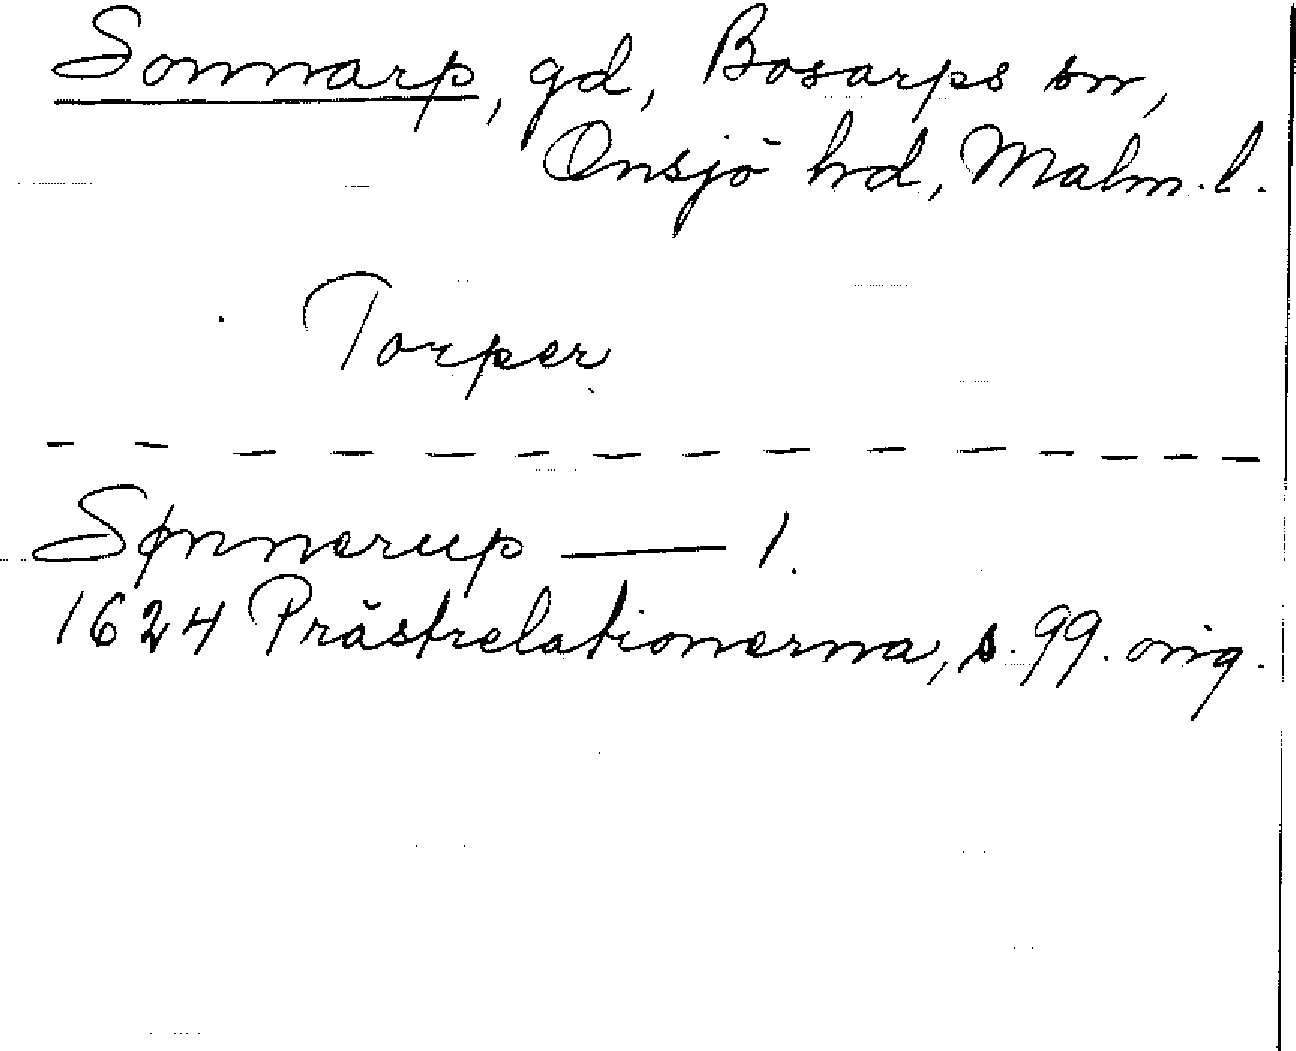 Sonnarp, gd, Bosarps sn,
Onsjö hd, Malm. l.
Torper
Sønnerup — 1.
1624 Prästrelationerna, s. 99. orig.